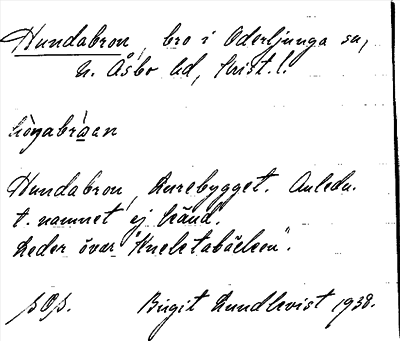 Hundabron, bro i Oderljunga sn,
N. Åsbo hd, Krist. l.
Hundabron, Rurebygget. Anledn.
t. namnet ej känd.
Leder över "Knektabäcken".
Birgit Lundkvist 1938.